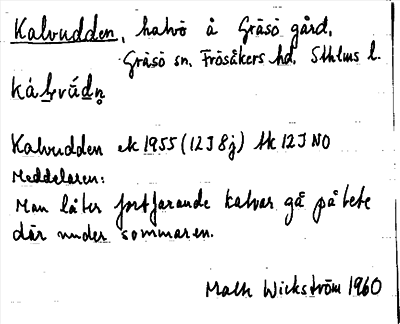 Kalvudden, halvö å Gräsö gård,
Gräsö sn. Frösåkers hd. Sthlms l.
kálvúdn̥
Kalvudden ek 1955 (12J 8j) tk 12J NO
Meddelaren:
Man låter fortfarande kalvar gå på bete
där under sommaren.
Mats Wickström 1960